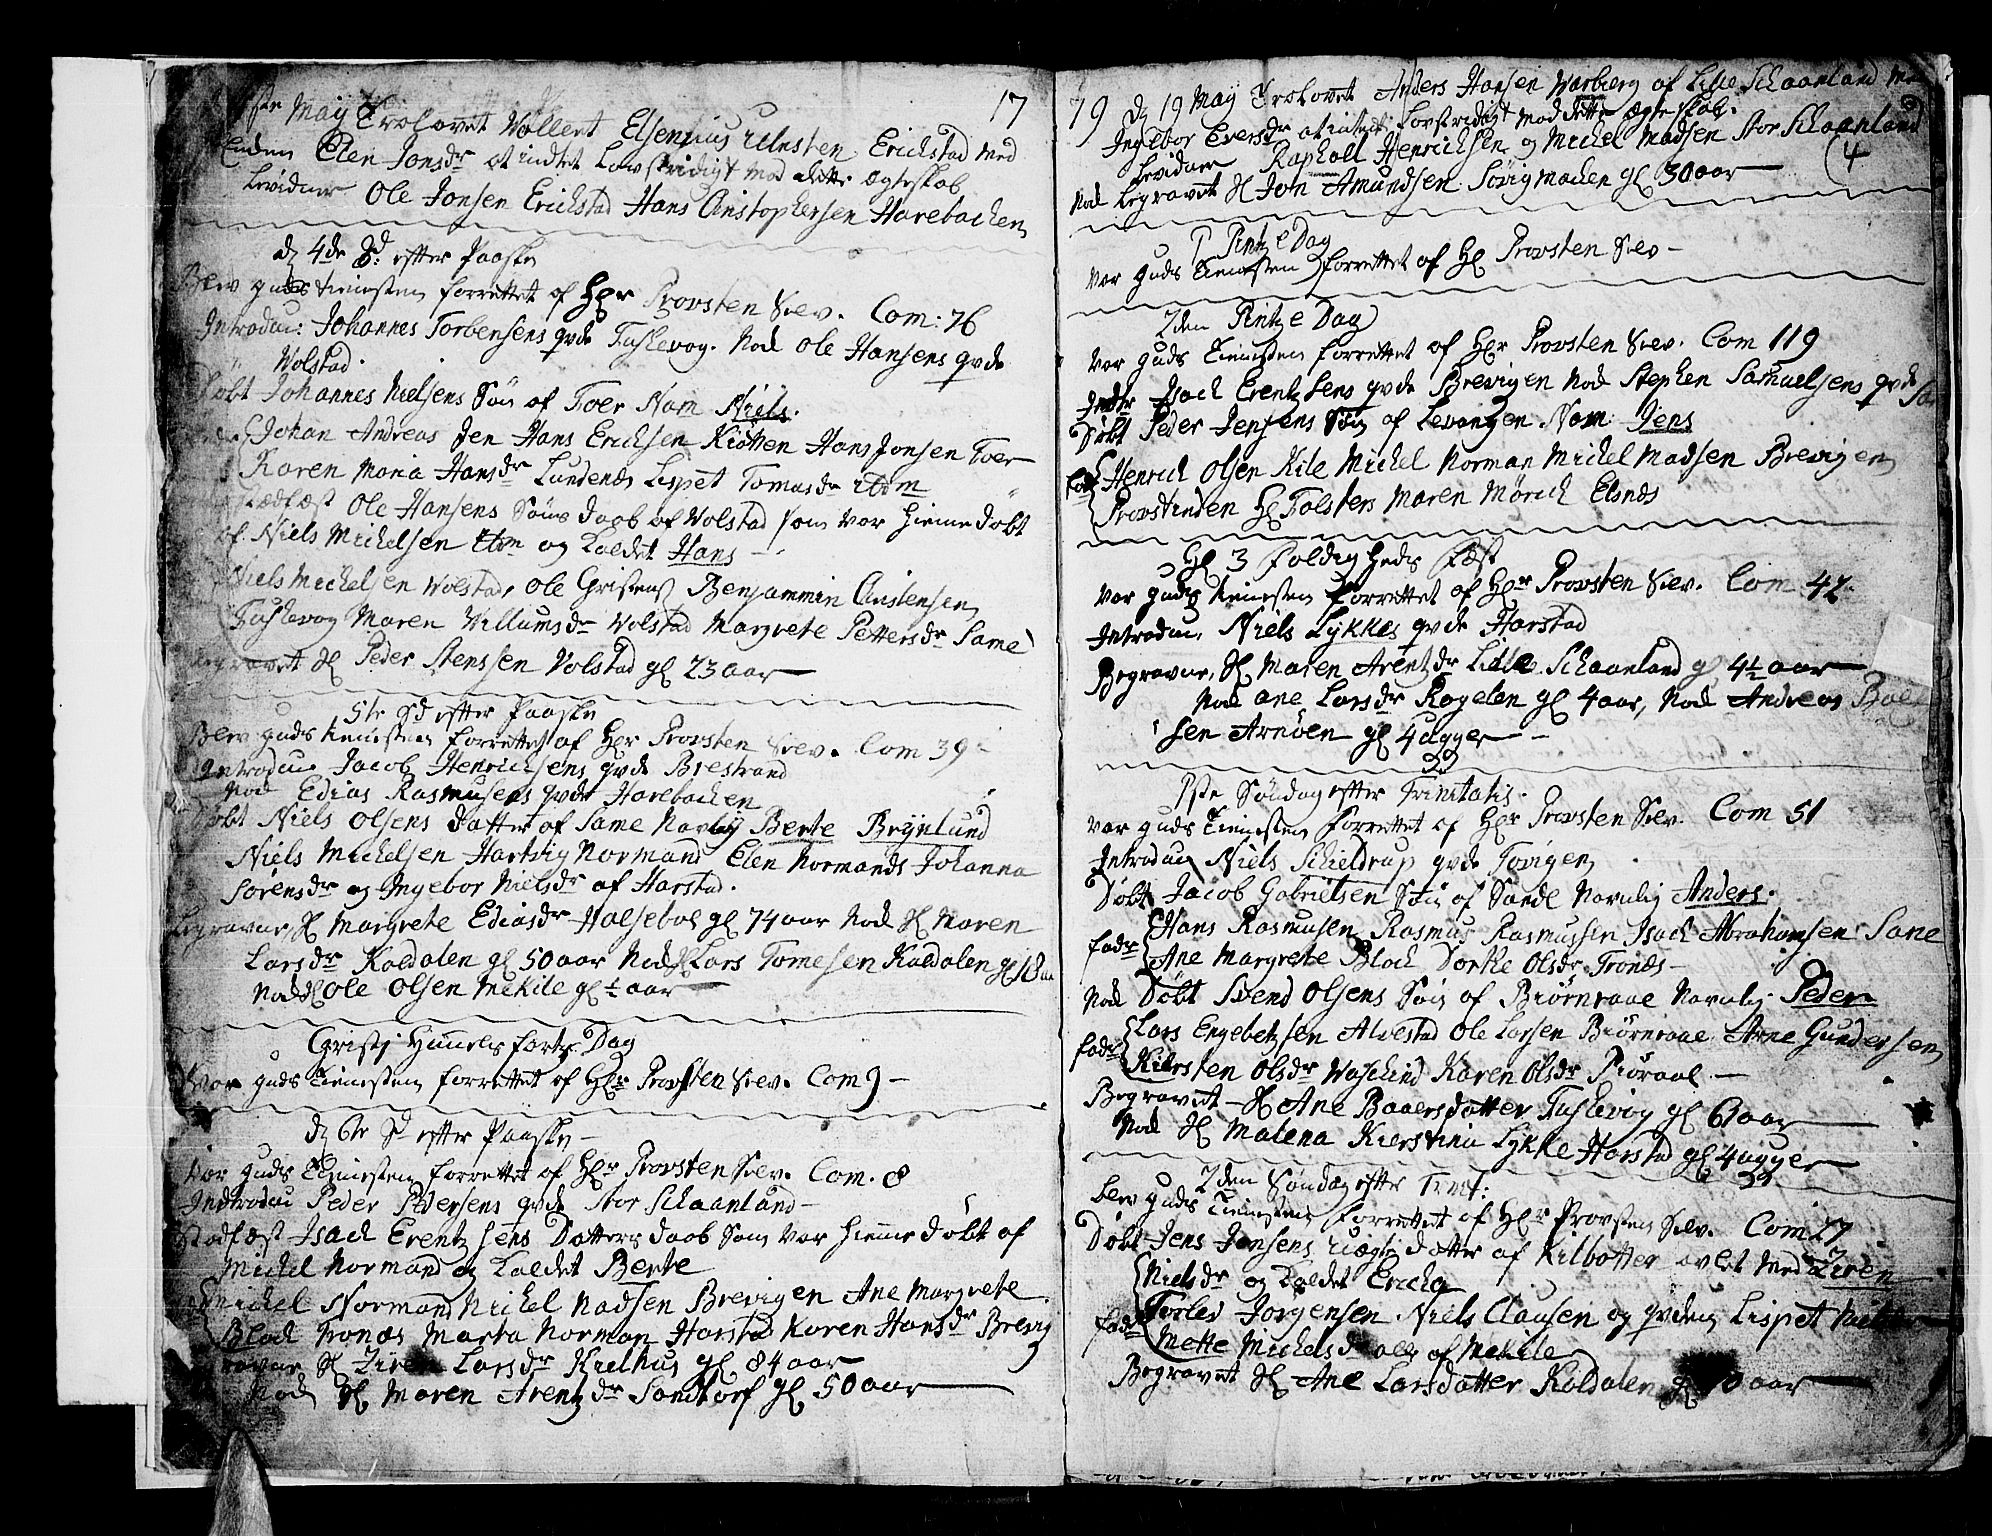 17
May Trolovet Wollert Elsenius Elnsten Erichstad med
Enden Elen Jonsdr at indtet Lovstridigt mod dette Ægteskab
Levidner Ole Jonsen Erichstad Hans Christophersen Harebachen
d 4de Sd: efter Paaske
Blev guds tienesten forrettet af Hr Provsten Siev. Com: 76
Introdu: Johannes Torbensens qvde Fuskevog. Nok Ole Hansens qvde
Wolstad.
Døbt Johannes Nielsens Søn af Toer Nam Niels.
Johan Andreas Jen Hans Erichsen Kiøtten Hans Jonsen Toer
Karen Maria Hansdr Lundenes Lispet Tomasdr ibdm
Stadfæst Ole Hansens Søns daab af Volstad som var hieme døbt
af Niels Michelsen ibdm og Kaldet Hans
Niels Michelsen Wolstad, Ole Grisens Benjammin Christensen
Fuskevog Maren Villumsdr Wolstad Margrete Pettersdr Same
Begravet Sl Peder Stenssen Volstad gl 23 aar
5te Sd efter Paaske
Blev guds tienesten forrettet af Hr Provsten Siev. Com 39
Introdu Jacob Henrichsens qvde Brestrand
Nok Edias Rasmusens qvde Harebachen
Døbt Niels Olsens datter af Same Navlig Berte Brynlund
Niels Michelsen Hartvig Normand Elen Normands Johanna
Sørensdr og Ingebor Nielsdr af Harstad.
Begravne, Sl Margrete Ediasdr Halseboe gl 74 aar Nok Sl Maren
Larsdr Kaldalen gl 50 aar Nok Sl Lars Tomesen Kaldalen gl 18 aar
Nok Sl Ole Olsen Mekile gl ½ aar
Christj Himmels farts Dag
Var guds Tienesten forrettet af Hr Provsten Siev. Com 9
d 6te Sd efter Paaske
Var guds Tienesten forrettet af Hr Provsten Siev. Com. 8
Indtrodu Peder Pedersens qvde Stor Schaanland
Stadfæst Isach Erentzsens Datters daab Som var hieme døbt af
Michel Normand og Kaldet Berte
Michel Normand Michel Madsen Brevigen Ane Margrete
Bloch Tronæs Marta Norman Harstad Karen Hansdr Brevig
Sl Ziren Larsdr Kielhus gl 84 aar
Nok Sl Maren Arentzdr Sandtorf gl 50 aar
19 d 19 May Trolovet Anders Hansen Warbierg af Lille Schaanland Med
Ingebor Eversdr at intet Lovstridigt mod dette Ægteskab.
Levidner Raphall Henrichsen og Michel Madsen Stor Schaanland
Nok begravet Sl Jon Amundsen Søvigmachen gl 30 aar (4
P Pintze Dag
Var guds Tienesten forrettet af Hr Provsten Siev
2den Pintze Dag
Var guds Tienesten forrettet af Hr Provsten Siev. Com 119
Indtr Isach Erentzsens qvde Brevigen Nok Stephen Samuelsens qvde
Døbt Peder Jensens Søn af Levangen. Nam Jens
fadr Henrich Olsen Kile Michel Norman Michel Madsen Brevigen
Provstinden Hr Tolstens Maren Mørich Elsnæs
Hl 3 foldigheds Fæst
Var guds tienesten forrettet af Hr Provsten Siev. Com 42
Introdu. Niels Lykkes qvde Harstad
Begravne, Sl Maren Arentzdr Lille Schaanland gl 4½ aar
Nok Ane Larsdr Rogelen gl 4 aar, Nok Andreas
sen Arnøen gl 4 uger
1ste Søndag efter Trinitatis.
Var guds Tienesten forrettet af Hr Provsten Siev. Com 51
Introdu Niels Schieldrup qvde Tovigen
Døbt Jacob Gabrielsen Søn af Sande Navnlig Anders.
fadr Hans Rasmusen Rasmus Rasmussen Isach Abrahamsen Sane
Ane Margrete Bloch Dorke Olsdr Tronæs
Nok Døbt Svend Olsens Søn af Biørnraae Navnlig. Peder
fadr Lars Engebetzsen Alvestad Ole Larsen Biørnraae Arne Gundersen
Kiersten Olsdr Waschind Karen Olsdr Piøraae
Begravet Sl Ane Baaersdatter Fuskevog gl 61 aar
Nok Sl Malena Kierstina Lykke Harstad gl 4 uger
2den Søndag efter Trit:
Blev guds Tienesten forrettet af Hr Provsten Siev. Com 27
Døbt Jens Jensens uægte datter af Kilbotter avlet med Ziren
Nielsdr og Kaldet Ericha
fadr Torlev Jorgensen. Niels Clausen og qvden Lispet
Mette Michelsdr alle af Mekile
Begravet Sl Ane Larsdatter Kaldalen gl 70 aar